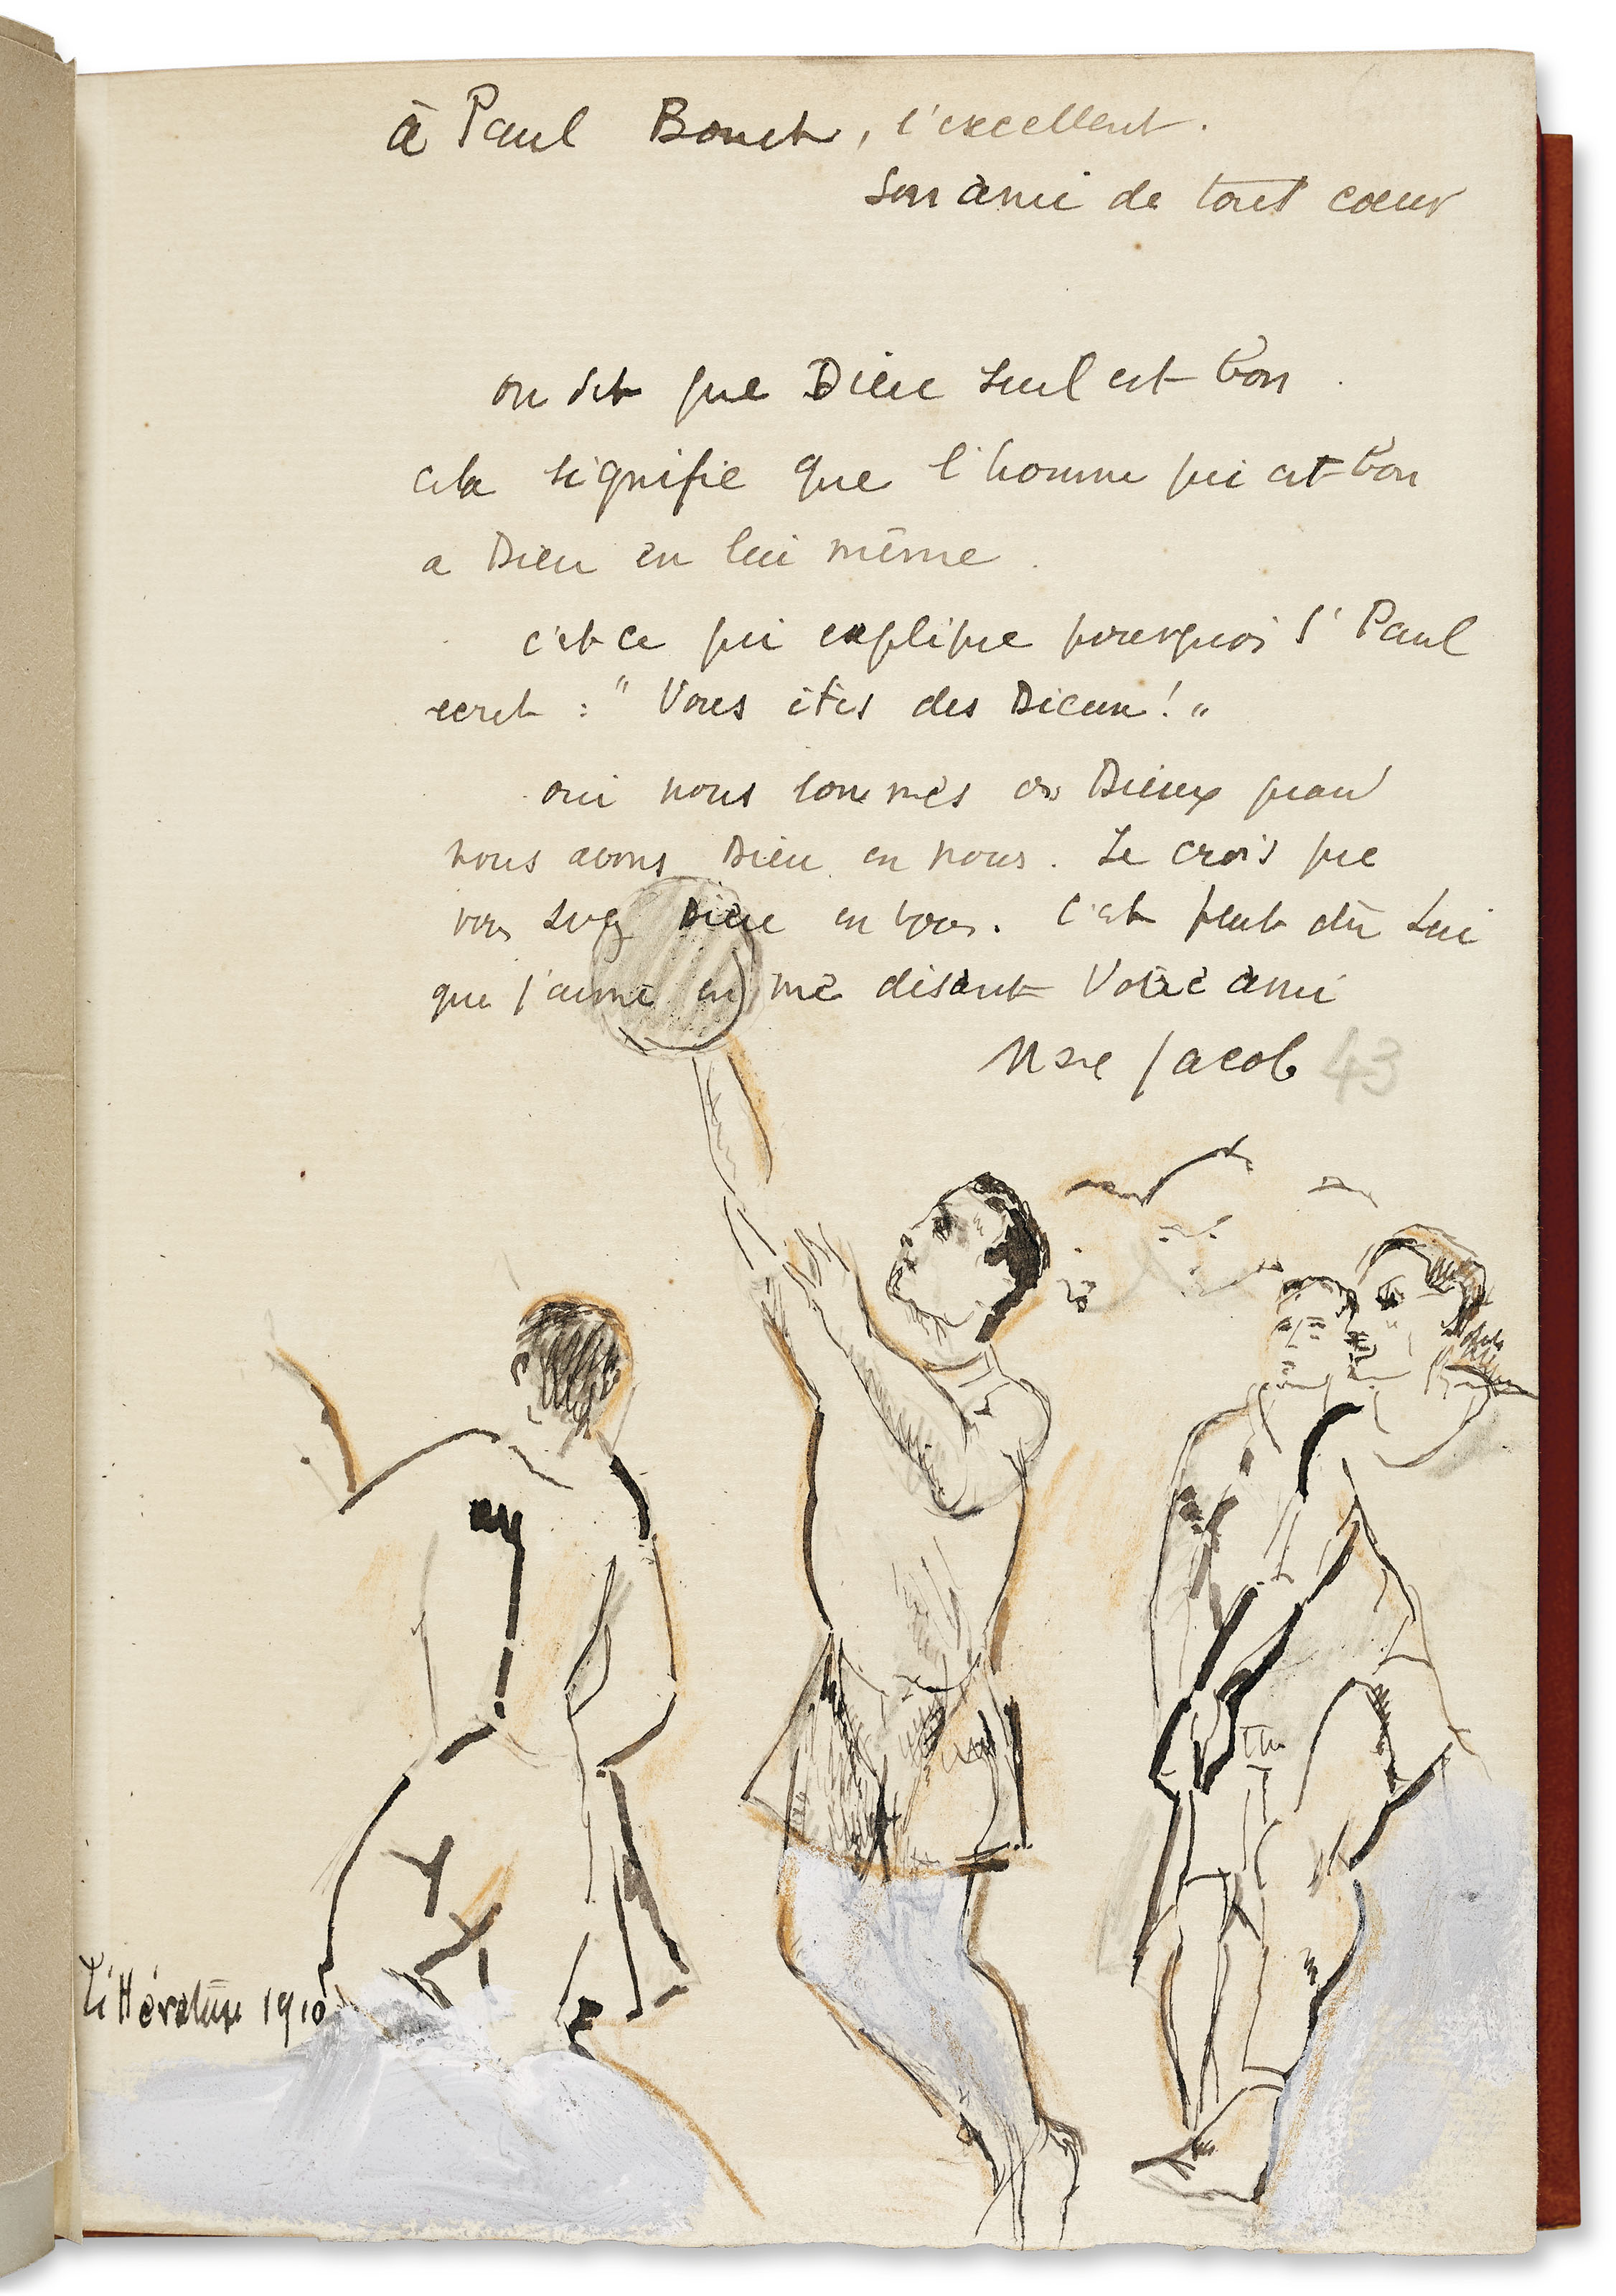 à Paul Bonet, l'excellent.
son ami de tout cœur
on dit que Dieu seul est bon.
cela signifie que l'homme qui est bon
a Dieu en lui même.
c'est ce qui explique pourquoi St Paul
ecrit : "Vous êtes des Dieux!"
oui nous sommes des Dieux quand
nous avons Dieu en nous. Je crois que
vous avez Dieu en vous. C'est peut être Lui
que j'aime en me disant Votre ami
Max Jacob 43
Littérature 1910